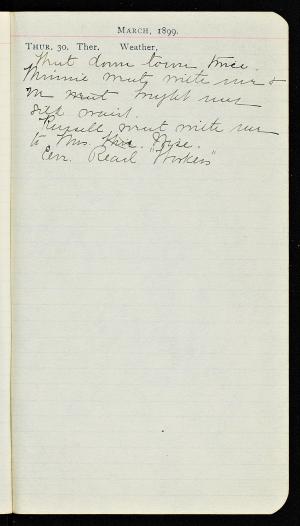 MARCH, 1899.
THUR. 30. Ther. Weather,
Went down town twice.
Minnie went with me &
we went bought me
silk waist.
Russell went with me
to Mrs. Wyse.
Eve. Read "Workers"